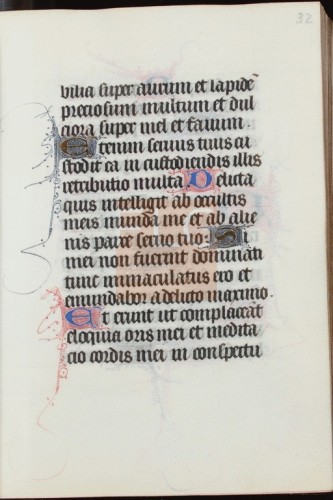 32
bilia super aurum et lapidē
preciosum multum et dul
ciora super mel et fauum .
Etenim seruus tuus cu
stodit ea in custodiendis illis
retributio multa Delicta
quis intelligit ab occultis
meis munda me et ab alie
nis parce seruo tuo: Si
mei non fuerint dominati
tunc immaculatus ero et
emundabor a delicto maximo.
Et erunt ut complaceāt
eloquia oris mei et medita
cio cordis mei in conspectu